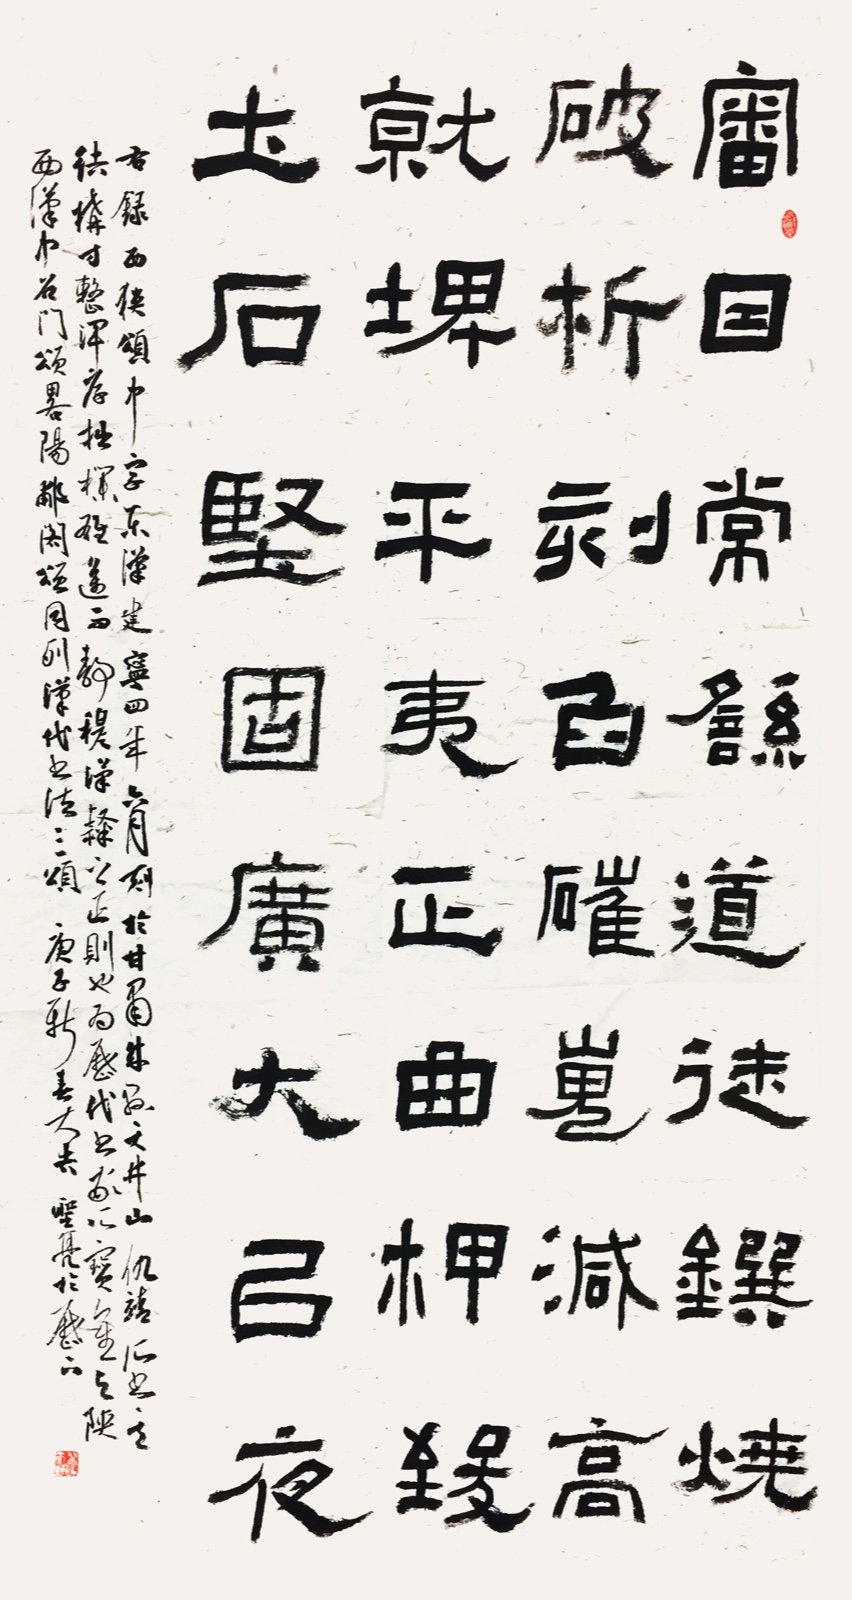 審国常繇道徒鐉燒
破析刻臽磪嵬減高
就埤平夷正曲柙致
土石堅固廣大㠯夜
右錄西狹頌中字東漢建寧四年六月刻於甘肅成縣天井山仇靖所書其
結構寸整渾厚拙樸雄遒而靜穆漢隸之正則也為歷代書家所寶重與陝
西漢中石門頌畧陽郙閣頌同列漢代書法三頌 庚子新春大吉 聖亮於歷下